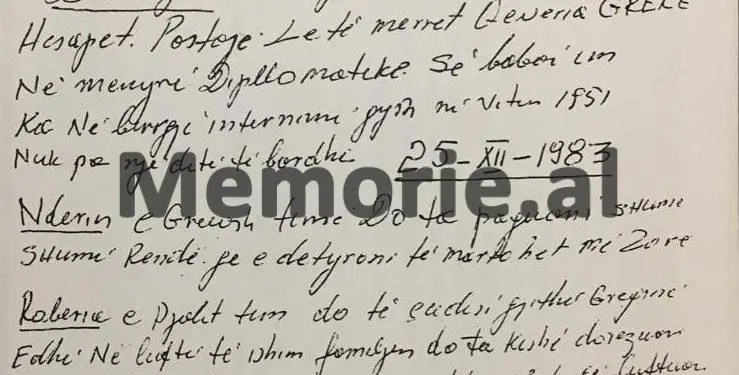 Hesapet. Postaje. Le të merret Qeveria GREKE
Në menyrë Dipllomatike. Se babai im
Ka Në burrgë internimi gysh në Vitin 1951
Nuk pa një ditë të bardhë 25-XII-1983
Memorie.al
Nderin e Gruash time Do ta paguani SHUMË
SHUMË Rëndë. qe e detyroni të martohet më Zorë
Roberia e Djalit tim do të çudisi gjithë Greqinë
Edhe Në luftë të ishim familjen do ta kishë dorëzuar
të luftuar.